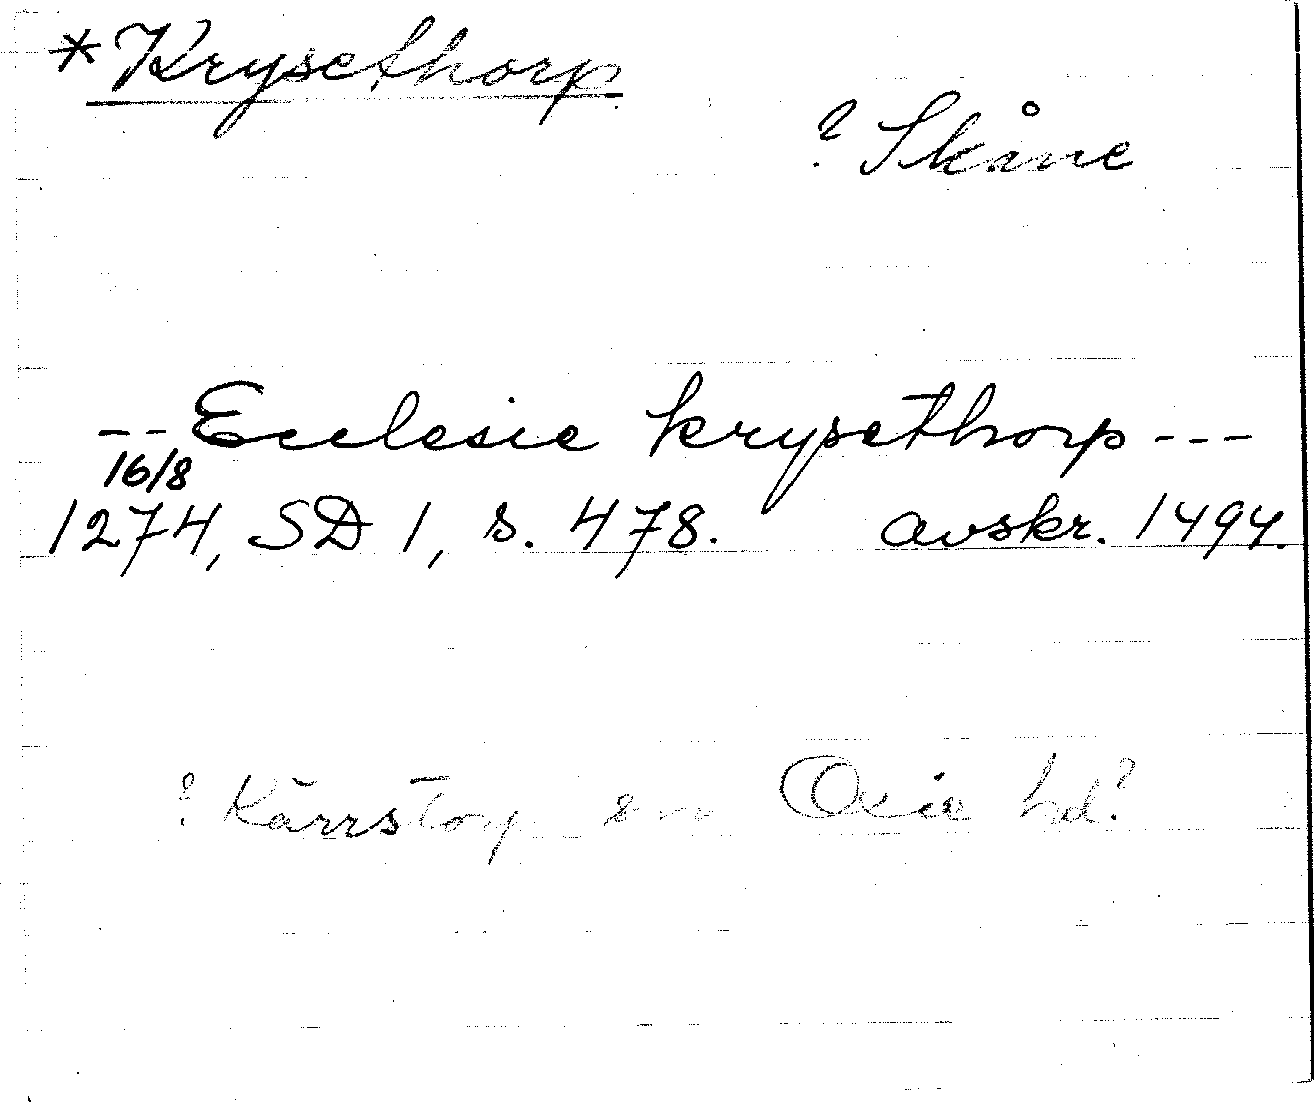 *Krysethorp
? Skåne
-- Ecclesie krysethorp ---
16/8
1274, SD 1, s. 478. avskr. 1494.
? Kärrstorp sn Oxie hd?